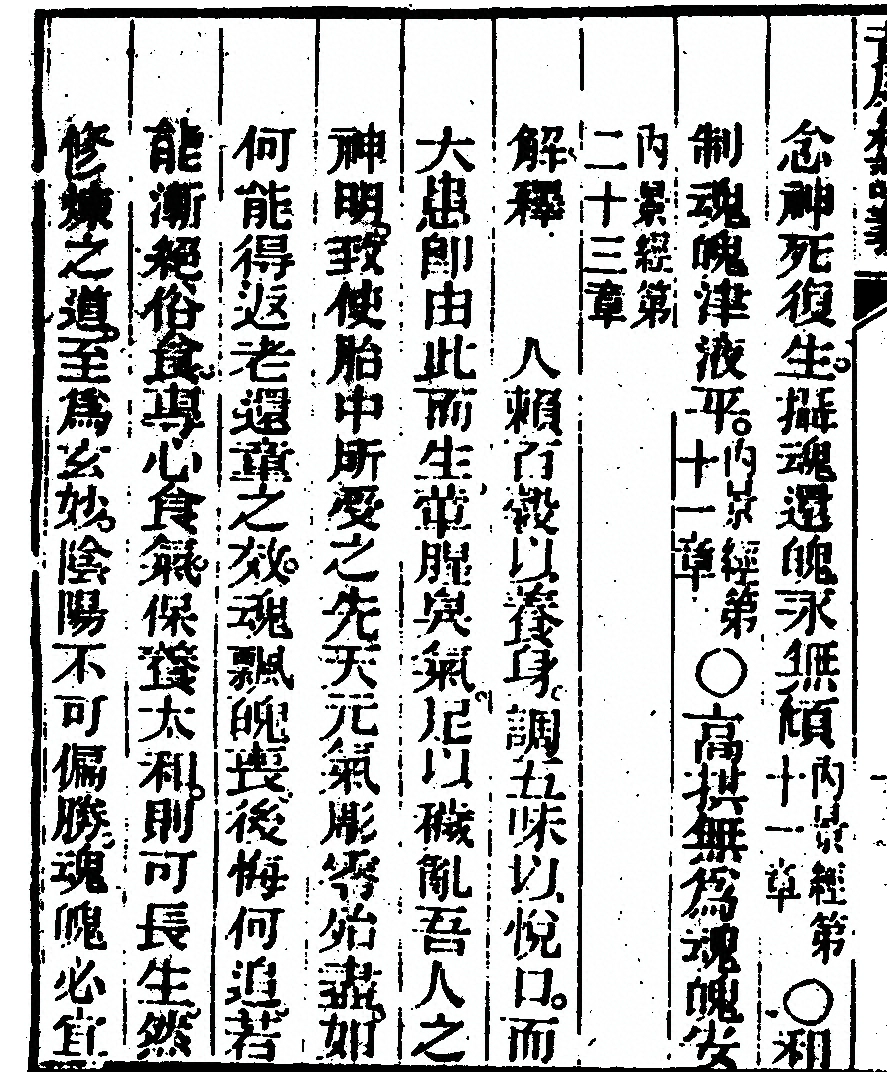 念神死復生攝魂還魄永無傾內景經第十一章○和
制魂魄津液平內景經第十一章○高拱無為魂魄安
內景經第二十三章
解釋　人賴百穀以養身調五味以悅口而
大患即由此而生葷腥臭氣足以穢亂吾人之
神明致使胎中所受之先天元氣彫零殆盡如
何能得返老還童之效魂飄魄喪後悔何追若
能漸絕俗食專心食氣保養太和則可長生然
修煉之道至為玄妙陰陽不可偏勝魂魄必宜